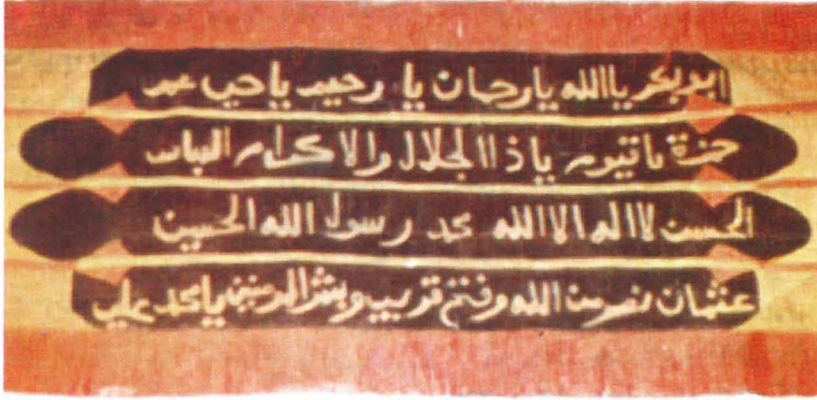 ابو بكر يا الله يا رحمان يا رحيم يا حي عمر
حمزة يا قيوم يا ذا الجلال والاكرام العباس
الحسن لا اله الا الله محمد رسول الله الحسين
عثمان نصر من الله وفتح قريب وبشر المومنين يا محمد علي